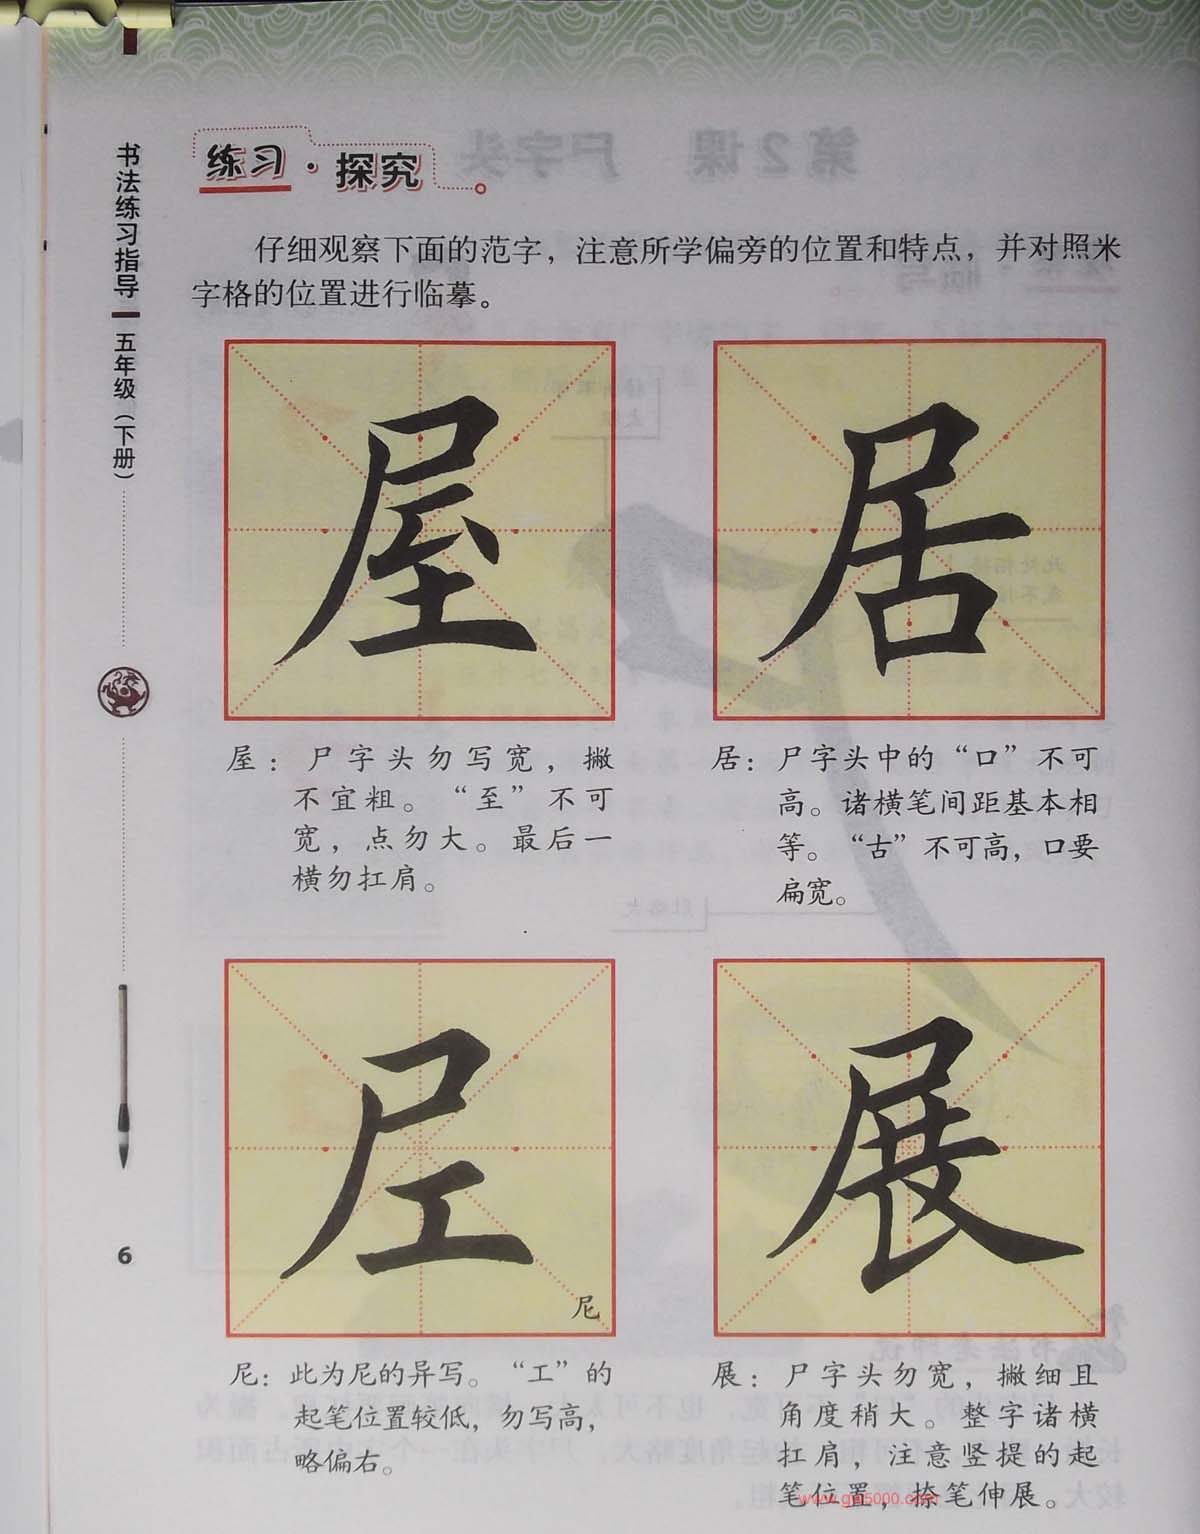 书法练习指导
五年级（下册）
6
练习·探究
仔细观察下面的范字，注意所学偏旁的位置和特点，并对照米
字格的位置进行临摹。
屋
居
屋：尸字头勿写宽，撇
不宜粗。“至”不可
宽，点勿大。最后一
横勿扛肩。
居：尸字头中的“口”不可
高。诸横笔间距基本相
等。“古”不可高，口要
扁宽。
尼
展
尼：此为尼的异写。“工”的
起笔位置较低，勿写高，
略偏右。
展：尸字头勿宽，撇细且
角度稍大。整字诸横
扛肩，注意竖提的起
笔位置，捺笔伸展。